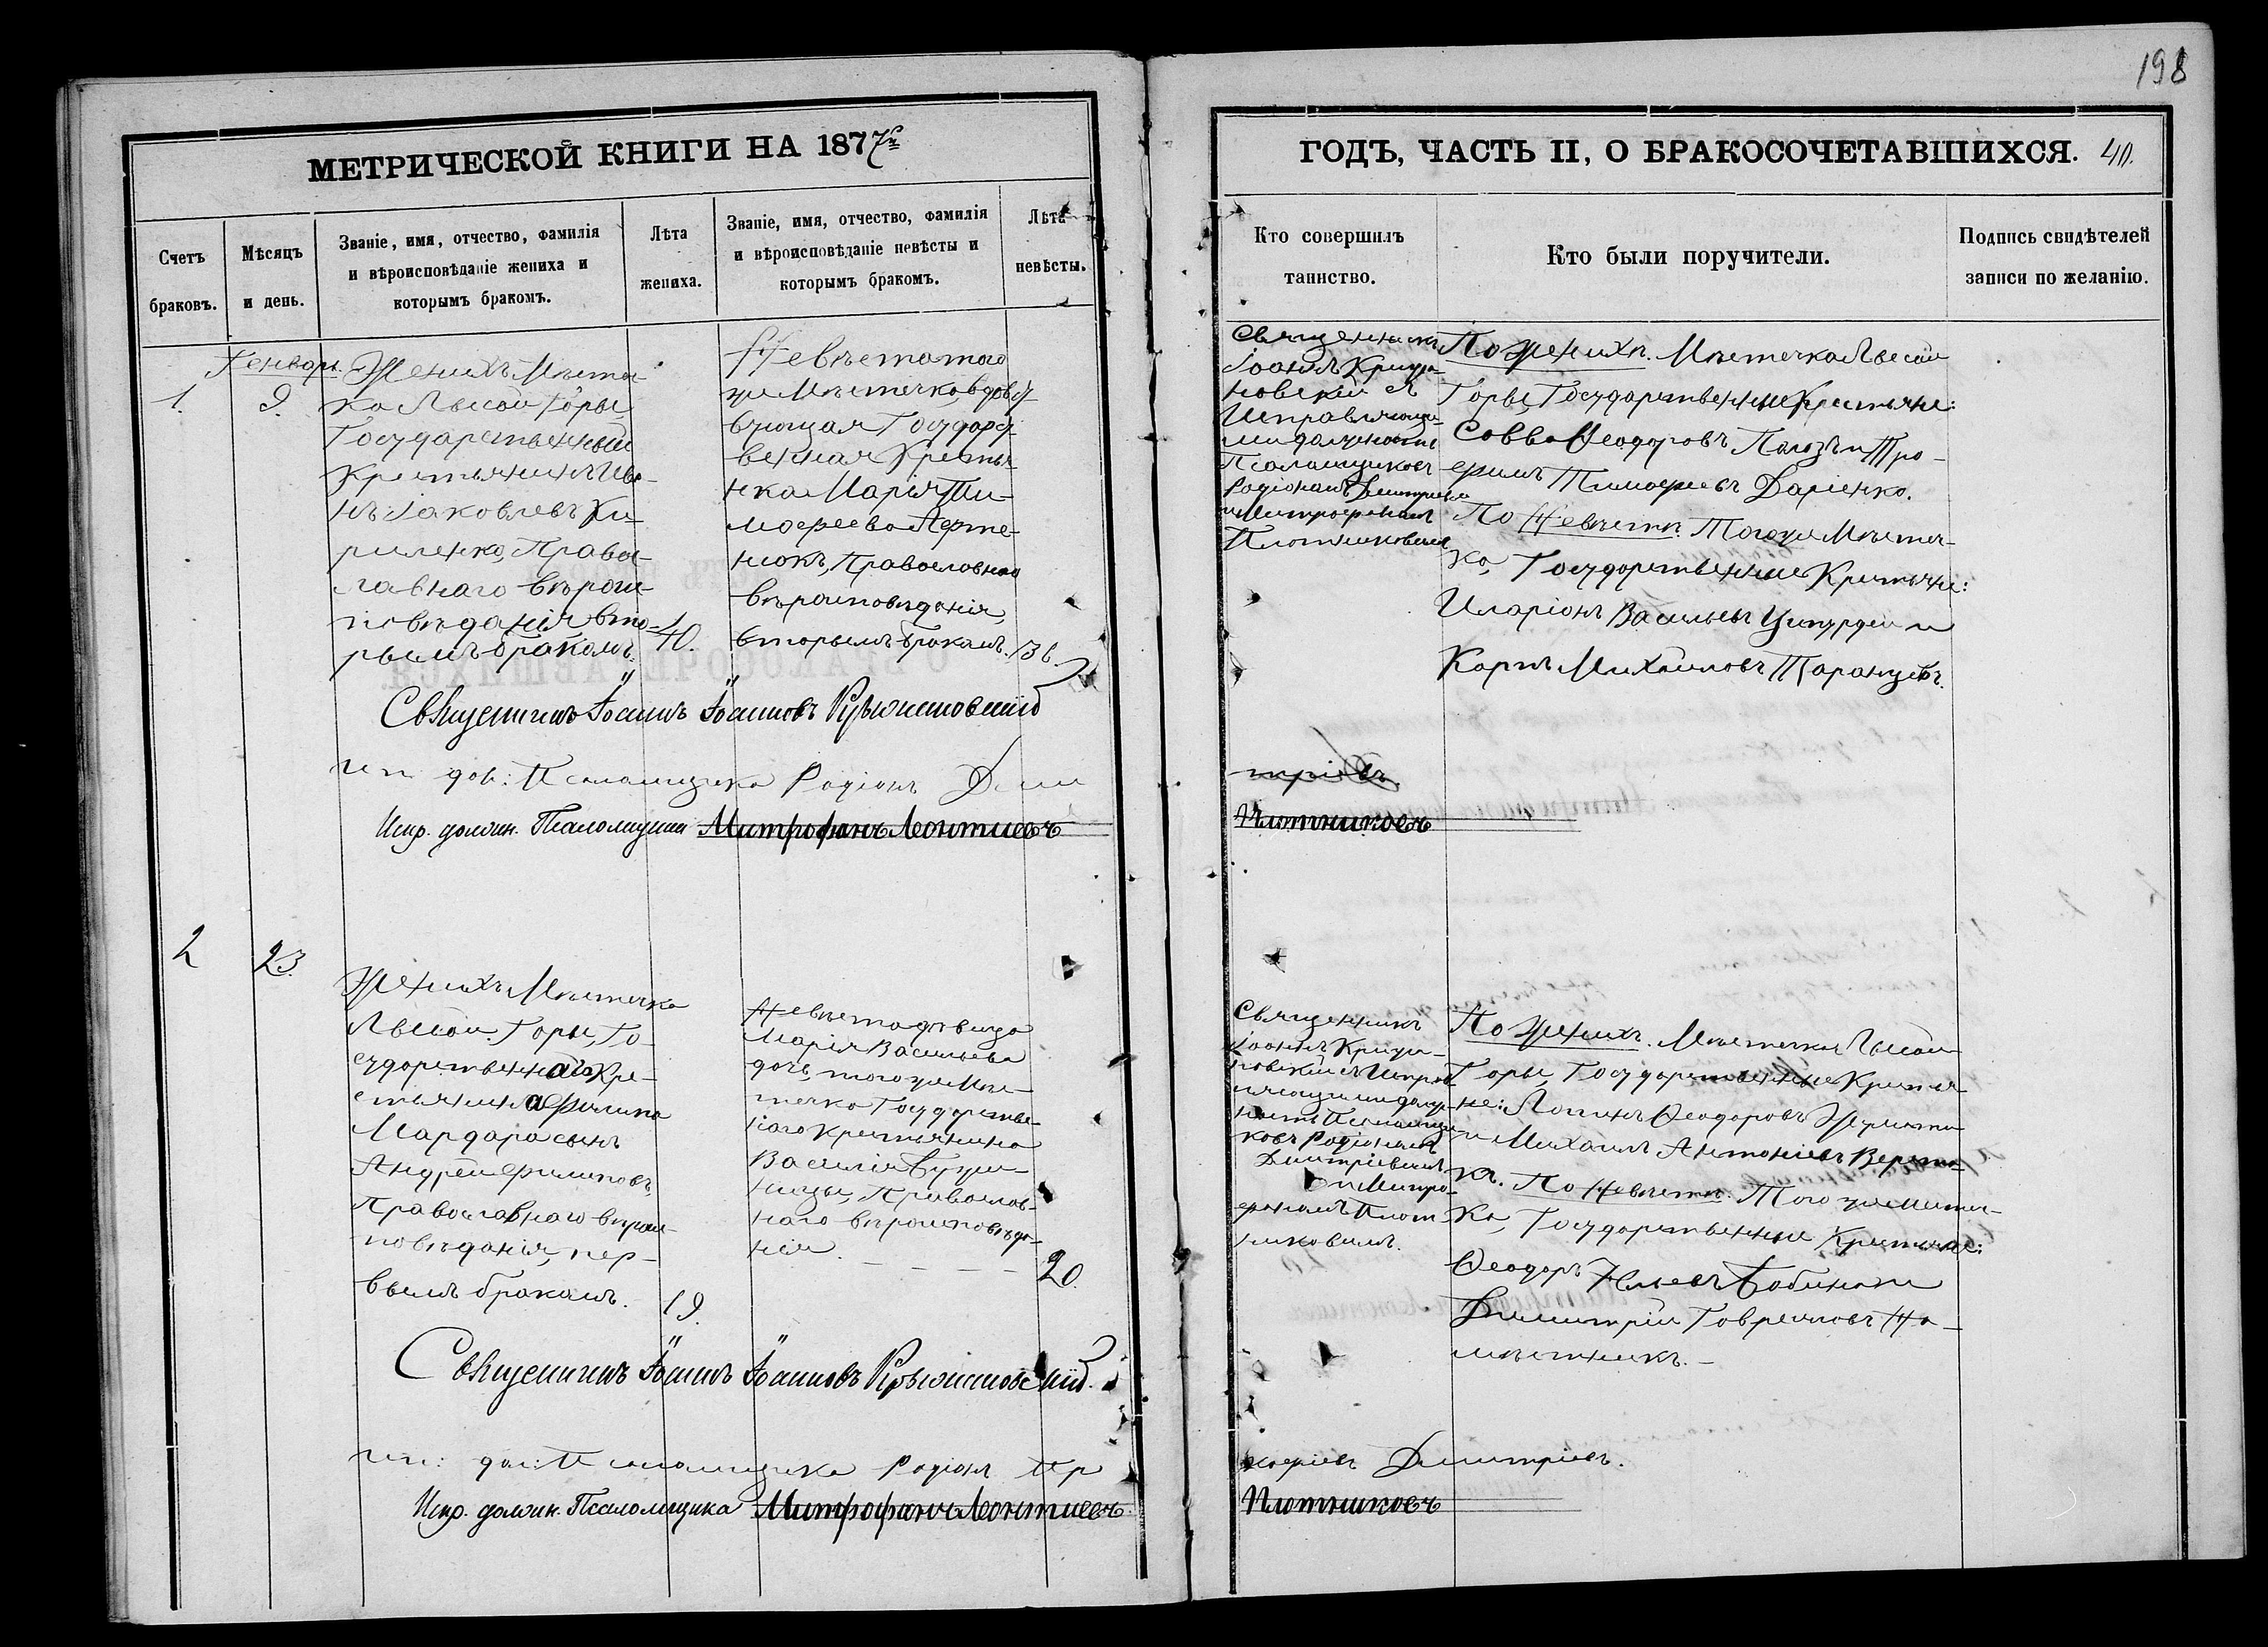 198
МЕТРИЧЕСКОЙ КНИГИ НА 1877й
ГОДЪ, ЧАСТЬ II, О БРАКОСОЧЕТАВШИХСЯ. 40.
Счетъ
браковъ.
Мѣсяцъ
и день.
Званіе, имя, отчество, фамилія
и вѣроисповѣданіе жениха и
которымъ бракомъ.
Лѣта
жениха.
Званіе, имя, отчество, фамилія
и вѣроисповѣданіе невѣсты и
которымъ бракомъ.
Лѣта
невѣсты.
Кто совершилъ
таинство.
Кто были поручители.
Подпись свидѣтелей
записи по желанію.
1.
Генварь.
9.
Женихъ Мѣстеч-
ка Лысой Горы
Государственный
Крестьянинъ Ива-
нъ Іаковлевъ Ки-
риленко, Правос-
лавнаго вѣроис-
повѣданія вто-
рымъ бракомъ.
40.
Невѣста того
же Мѣстечка, вдовс-
вующая Государст-
венная Крестья-
нка Марія Ти-
моѳеева
Православнаго
вѣроисповѣданія
вторымъ бракомъ.
36.
Священникъ
Іоаннъ Крижа-
новскій съ
Исправляющи-
ми должность
Псаломщиковъ
Родіономъ Дмитріевымъ
и Митрофаномъ
Плотниковымъ
По Женихѣ. Мѣстечка Лысой
Горы, Государственные Крестьяне:
Савва Ѳеодоровъ Полозъ и Тро-
фимъ Тимоѳеевъ Даріенко.
По Невѣстѣ. Того же Мѣстеч-
ка, Государственные Крестьяне:
Иларіонъ Васильевъ и
Карпъ Михайловъ Таранцевъ.
Священникъ Іоаннъ Іоанновъ
исп. дол: Псаломщика Родіонъ Дми
тріевъ.
Испр. должн. Псаломщика Митрофанъ Леонтиевъ
Плотниковъ
2
23.
Женихъ Мѣстечка
Лысой Горы, Го-
сударственнаго Кре-
стьянина Филипа
Мардара сынъ
Андрей Филиповъ,
Православнаго вѣроис-
повѣданія, пер-
вымъ бракомъ.
19.
Невѣста дѣвица
Марія Васильева
дочь, того же Мѣс-
течка Государствен-
наго Крестьянина
Василія
Православ-
наго вѣроисповѣда-
нія.
20.
Священникъ
Іоаннъ Крижа-
новскій съ Исправ-
ляющими долж-
ность Псаломщи-
ковъ Родіономъ
Дмитріевымъ
и Митро-
фаномъ Плот-
никовымъ.
По Женихѣ. Мѣстечка Лысой
Горы, Государственные Крестья-
не: Логинъ Ѳеодоровъ
и Михаилъ Антоніевъ
По Невѣстѣ. Того же Мѣстеч-
ка, Государственные Крестьяне:
Ѳеодоръ Ильевъ и
Димитрій Гавриловъ На-
мѣстникъ.
Священникъ Іоаннъ Іоанновъ
исп: дол: Псаломщика Родіонъ Пр
кофіевъ Дмитріевъ.
Испр. должн. Псаломщика Митрофанъ Леонтиевъ
Плотниковъ